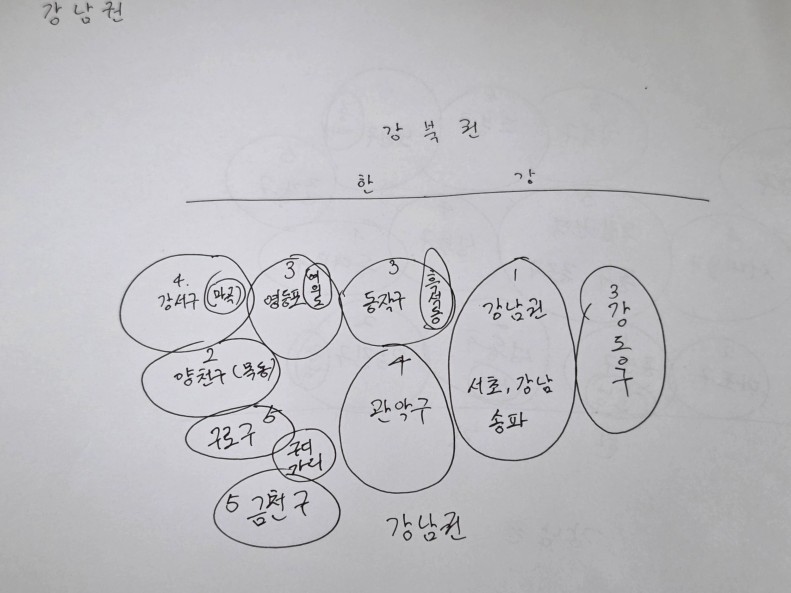 강남권
강북권
한강
4.
강서구 (마곡)
3
영등포
여의도
3
동작구
흑석동
1
강남권
서초, 강남
송파
3
강동구
2
양천구 (목동)
4
관악구
5
구로구
구디
가디
5 금천구
강남권